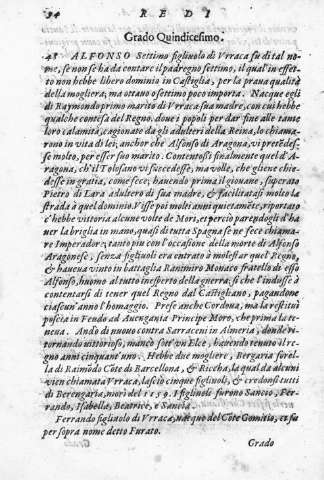 94 R E D I
Grado Quindicesimo.
48 ALFONSO Settimo figliuolo di Vrraca fù di tal no-
me, se non se ha da contare il padregno settimo, il qual'in effet-
to non hebbe libero dominio in Castiglia, per la praua qualità
della mogliera; ma ottauo o settimo poco importa. Nacque egli
di Raymondo primo marito di Vrraca sua madre, con cui hebbe
qualche contesa del Regno. doue i popoli per dar fine alle tante
loro calamità, cagionate da gli adulterı della Reina, lo chiama-
rono in vita di lei; anchor che Alfonso di Aragona, vi pretẽdes-
se molto, per esser suo marito. Contentossi finalmente quel d'A-
ragona, ch'il Tolosano vi succedesse, ma volle, che gliene chie-
desse in gratia, come fece; hauendo prima il giouane, superato
Pietro di Lara adultero di sua madre, & facilitatasi molto la
strada à quel dominio. Visse poi molti anni quietamẽte, riportato
c'hebbe vittoria alcune volte de Mori, et perciò parendogli d'ha
uer la briglia in mano, quasi di tutta Spagna se ne fece chiama-
re Imperadore; tanto più con l'occasione della morte di Alfonso
Aragonese, senza figliuoli era entrato à molestar quel Regno,
& haueua vinto in battaglia Ranimiro Monaco fratello di esso
Alfonso, huomo al tutto inesperto della guerra; si che l'indusse à
contentarsi di tener quel Regno dal Castigliano, pagandone
ciascun'anno l'homaggio. Prese anche Cordoua, ma la restituì
poscia in Feudo ad Aucungania Principe Moro, che prima la te-
neua. Andò di nuouo contra Sarraceni in Almeria, donde ri-
tornando vittorioso, mancò sott'vn Elce, hauendo tenuto il re-
gno anni cinquant'vno. Hebbe due mogliere, Bergaria sorel-
la di Raimõdo Cõte di Barcellona, & Riccha, la qual da alcuni
vien chiamata Vrraca, lasciò cinque figliuoli, & credonsi tutti
di Berengaria, morì del 1159. I figliuoli furono Sancio, Fer-
rando, Isabella, Beatrice, e Sancia.
Ferrando figliuolo di Vrraca, nacque del Cõte Gomitio, et fu
per sopra nome detto Furato.
Grado